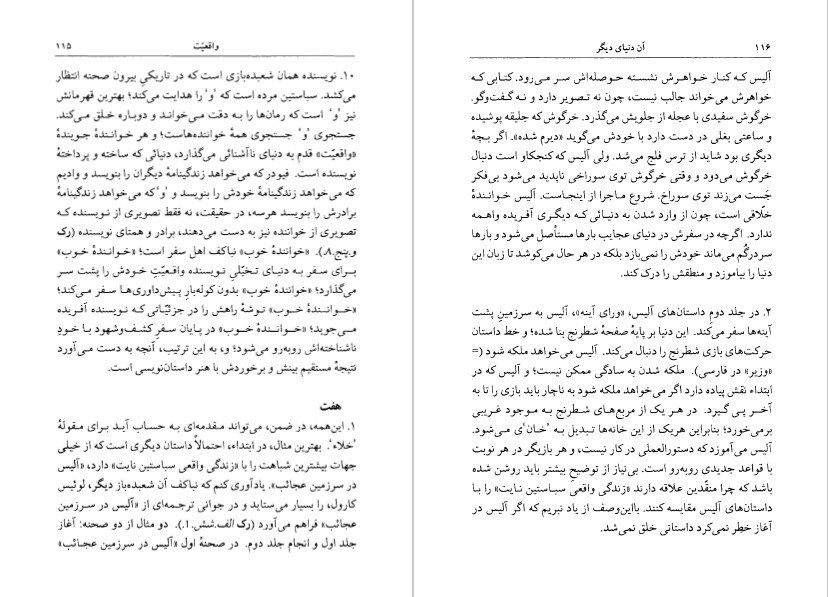 واقعیّت ۱۱۵
۱۰. نویسنده همان شعبده‌بازی است که در تاریکیِ بیرون صحنه انتظار
می‌کشد. سباستین مرده است که ‘و’ را هدایت می‌کند؛ بهترین قهرمانش
نیز ‘و’ است که رمان‌ها را به دقت می‌خواند و دوباره خلق می‌کند.
جستجوی ‘و’ جستجوی همهٔ خواننده‌هاست؛ و هر خوانندهٔ جویندهٔ
«واقعیّت» قدم به دنیای ناآشنائی می‌گذارد، دنیائی که ساخته و پرداختهٔ
نویسنده است. فیودر که می‌خواهد زندگینامهٔ دیگران را بنویسد و وادیم
که می‌خواهد زندگینامهٔ خودش را بنویسد و ‘و’که می‌خواهد زندگینامهٔ
برادرش را بنویسد هرسه، در حقیقت، نه فقط تصویری از نویسنده که
تصویری از خواننده نیز به دست می‌دهند، برادر و همتای نویسنده (رک
و.پنج.۸). «خوانندهٔ خوب» نباکف اهل سفر است؛ «خوانندهٔ خوب»
برای سفر به دنیای تخیّلیِ نویسنده واقعیّتِ خودش را پشت سر
می‌گذارد؛ «خوانندهٔ خوب» بدون کوله‌بارِ پیش‌داوری‌ها سفر می‌کند؛
«خوانندهٔ خوب» توشهٔ راهش را در جزئیّاتی که نویسنده آفریده
می‌جوید؛ «خوانندهٔ خوب» در پایان سفرِ کشف‌وشهود با خودِ
ناشناخته‌اش روبه‌رو می‌شود؛ و، به این ترتیب، آنچه به دست می‌آورد
نتیجهٔ مستقیم بینش و برخوردش با هنر داستان‌نویسی است.
هفت
۱. این‌همه، در ضمن، می‌تواند مقدمه‌ای به حساب آید برای مقولهٔ
‘خلاء’. بهترین مثال، در ابتداء، احتمالاً داستان دیگری است که از خیلی
جهات بیشترین شباهت را با «زندگی واقعی سباستین نایت» دارد، «آلیس
در سرزمین عجائب». یادآوری کنم که نباکف آن شعبده‌باز دیگر، لوئیس
کارول، را بسیار می‌ستاید و در جوانی ترجمه‌ای از «آلیس در سرزمین
عجائب» فراهم می‌آورد (رک الف.شش.۱). دو مثال از دو صحنه: آغاز
جلد اول و انجام جلد دوم. در صحنهٔ اول «آلیس در سرزمین عجائب»
۱۱۶ آن دنیای دیگر
آلیس که کنار خواهرش نشسته حوصله‌اش سر می‌رود. کتابی که
خواهرش می‌خواند جالب نیست، چون نه تصویر دارد و نه گفت‌وگو.
خرگوش سفیدی با عجله از جلویش می‌گذرد. خرگوش که جلیقه پوشیده
و ساعتی بغلی در دست دارد با خودش می‌گوید «دیرم شده». اگر بچهٔ
دیگری بود شاید از ترس فلج می‌شد. ولی آلیس که کنجکاو است دنبال
خرگوش می‌دود و وقتی خرگوش توی سوراخی ناپدید می‌شود بی‌فکر
جَست می‌زند توی سوراخ. شروع ماجرا از اینجاست. آلیس خوانندهٔ
خلّاقی است، چون از وارد شدن به دنیائی که دیگری آفریده واهمه
ندارد. اگرچه در سفرش در دنیای عجایب بارها مستأصل می‌شود و بارها
سردرگُم می‌ماند خودش را نمی‌بازد بلکه در هر حال می‌کوشد تا زبان این
دنیا را بیاموزد و منطقش را درک کند.
۲. در جلد دومِ داستان‌های آلیس، «ورای آینه»، آلیس به سرزمینِ پشت
آینه‌ها سفر می‌کند. این دنیا بر پایهٔ صفحهٔ شطرنج بنا شده؛ و خط داستان
حرکت‌های بازی شطرنج را دنبال می‌کند. آلیس می‌خواهد ملکه شود (=
«وزیر» در فارسی). ملکه شدن به سادگی ممکن نیست؛ و آلیس که در
ابتداء نقش پیاده دارد اگر می‌خواهد ملکه شود به ناچار باید بازی را تا به
آخر پی گیرد. در هر یک از مربع‌های شطرنج به موجود غریبی
برمی‌خورد؛ بنابراین هریک از این خانه‌ها تبدیل به ‘خان’ی می‌شود.
آلیس می‌آموزد که دستورالعملی در کار نیست، و هر بازیگر در هر نوبت
با قواعد جدیدی روبه‌رو است. بی‌نیاز از توضیحِ بیشتر باید روشن شده
باشد که چرا منقّدین علاقه دارند «زندگی واقعی سباستین نایت» را با
داستان‌های آلیس مقایسه کنند. بااین‌وصف از یاد نبریم که اگر آلیس در
آغاز خطر نمی‌کرد داستانی خلق نمی‌شد.